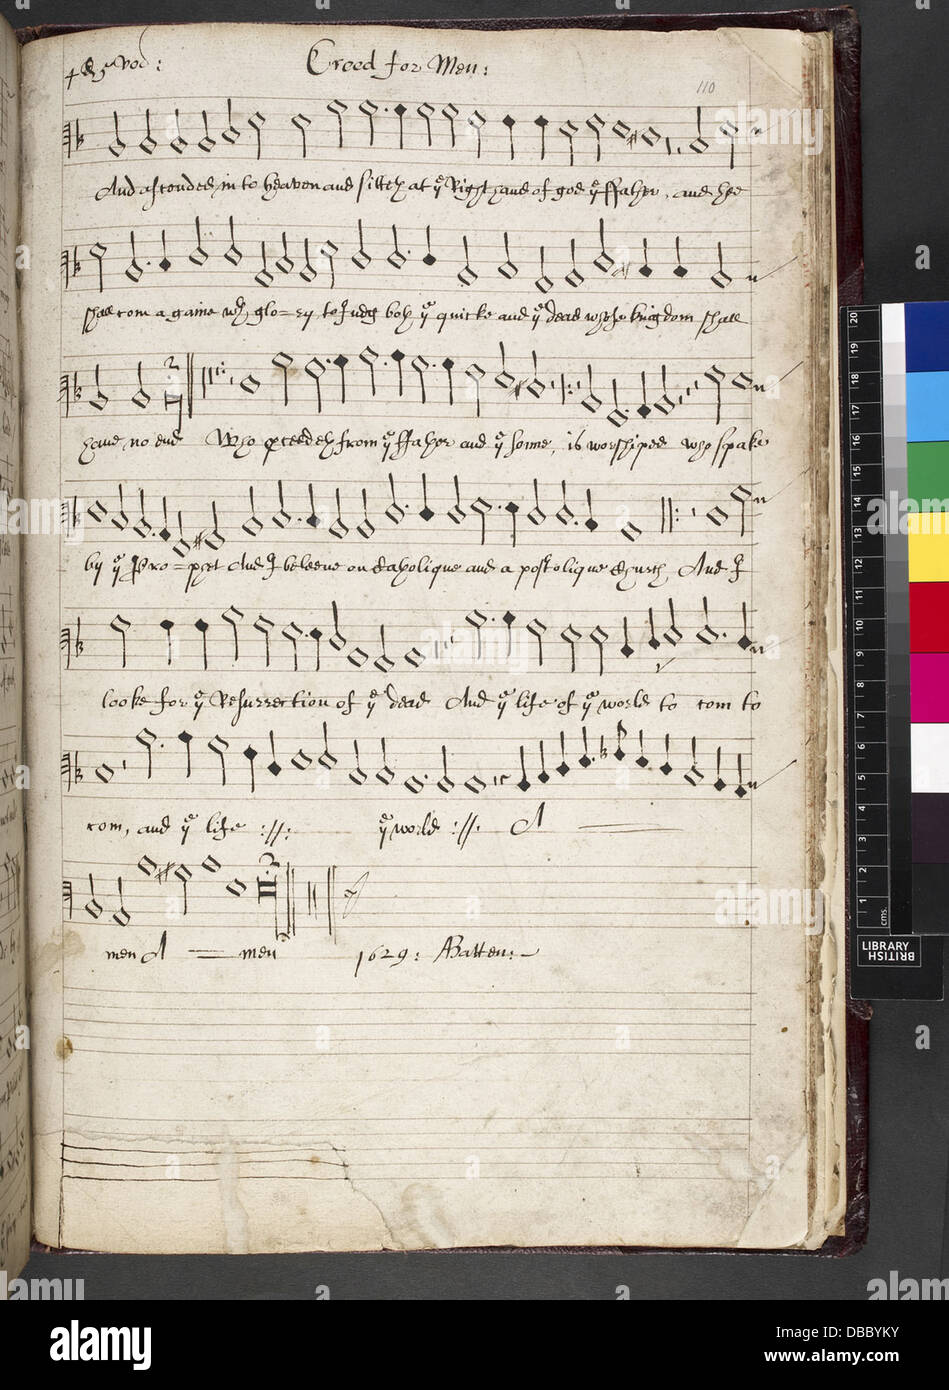 4 & 5 voc: Creed for Men:
110
And ascended in to heaven and sitteth at yᵉ Right hand of god yᵉ ffather, and hee
shall com againe wth glo=ry to Judg both yᵉ quicke and yᵉ dead whose kingdom shall
have no end Who pceedeth from yᵉ ffather and yᵉ sonne, is worshiped who spake
by yᵉ Pro=phet And I beleeve on Catholique and apostolique Church, And I
looke for yᵉ Resurrection of yᵉ dead And yᵉ life of yᵉ world to com to
com, and yᵉ life ://: yᵉ world ://: A
men A — men 1629: ABatten:
20 19 18 17 16 15 14 13 12 11 10 9 8 7 6 5 4 3 2 1 cms.
BRITISH
LIBRARY
alamy
Image ID: DBBYKY
www.alamy.com